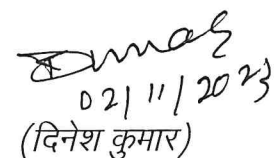 02/11/2023
(दिनेश कुमार)